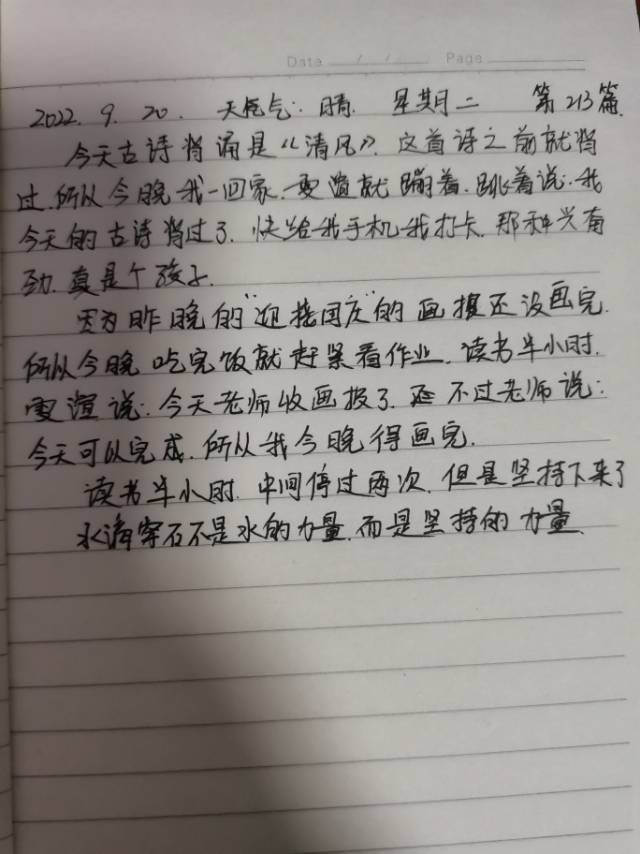 Date / / Page
2022. 9. 20. 天气: 晴. 星期二 第213篇.
今天古诗背诵是《清风》. 这首诗之前就背
过.所以今晚我一回家.雯渲就蹦着.跳着说.我
今天的古诗背过了.快给我手机我打卡.那种兴奋
劲.真是个孩子.
因为昨晚的"迎接国庆"的画报还没画完.
所以今晚吃完饭就赶紧着作业.读书半小时.
雯渲说:今天老师收画报了.不过老师说:
今天可以完成.所以我今晚得画完.
读书半小时.中间停过两次.但是坚持下来了
水滴穿石不是水的力量.而是坚持的力量.